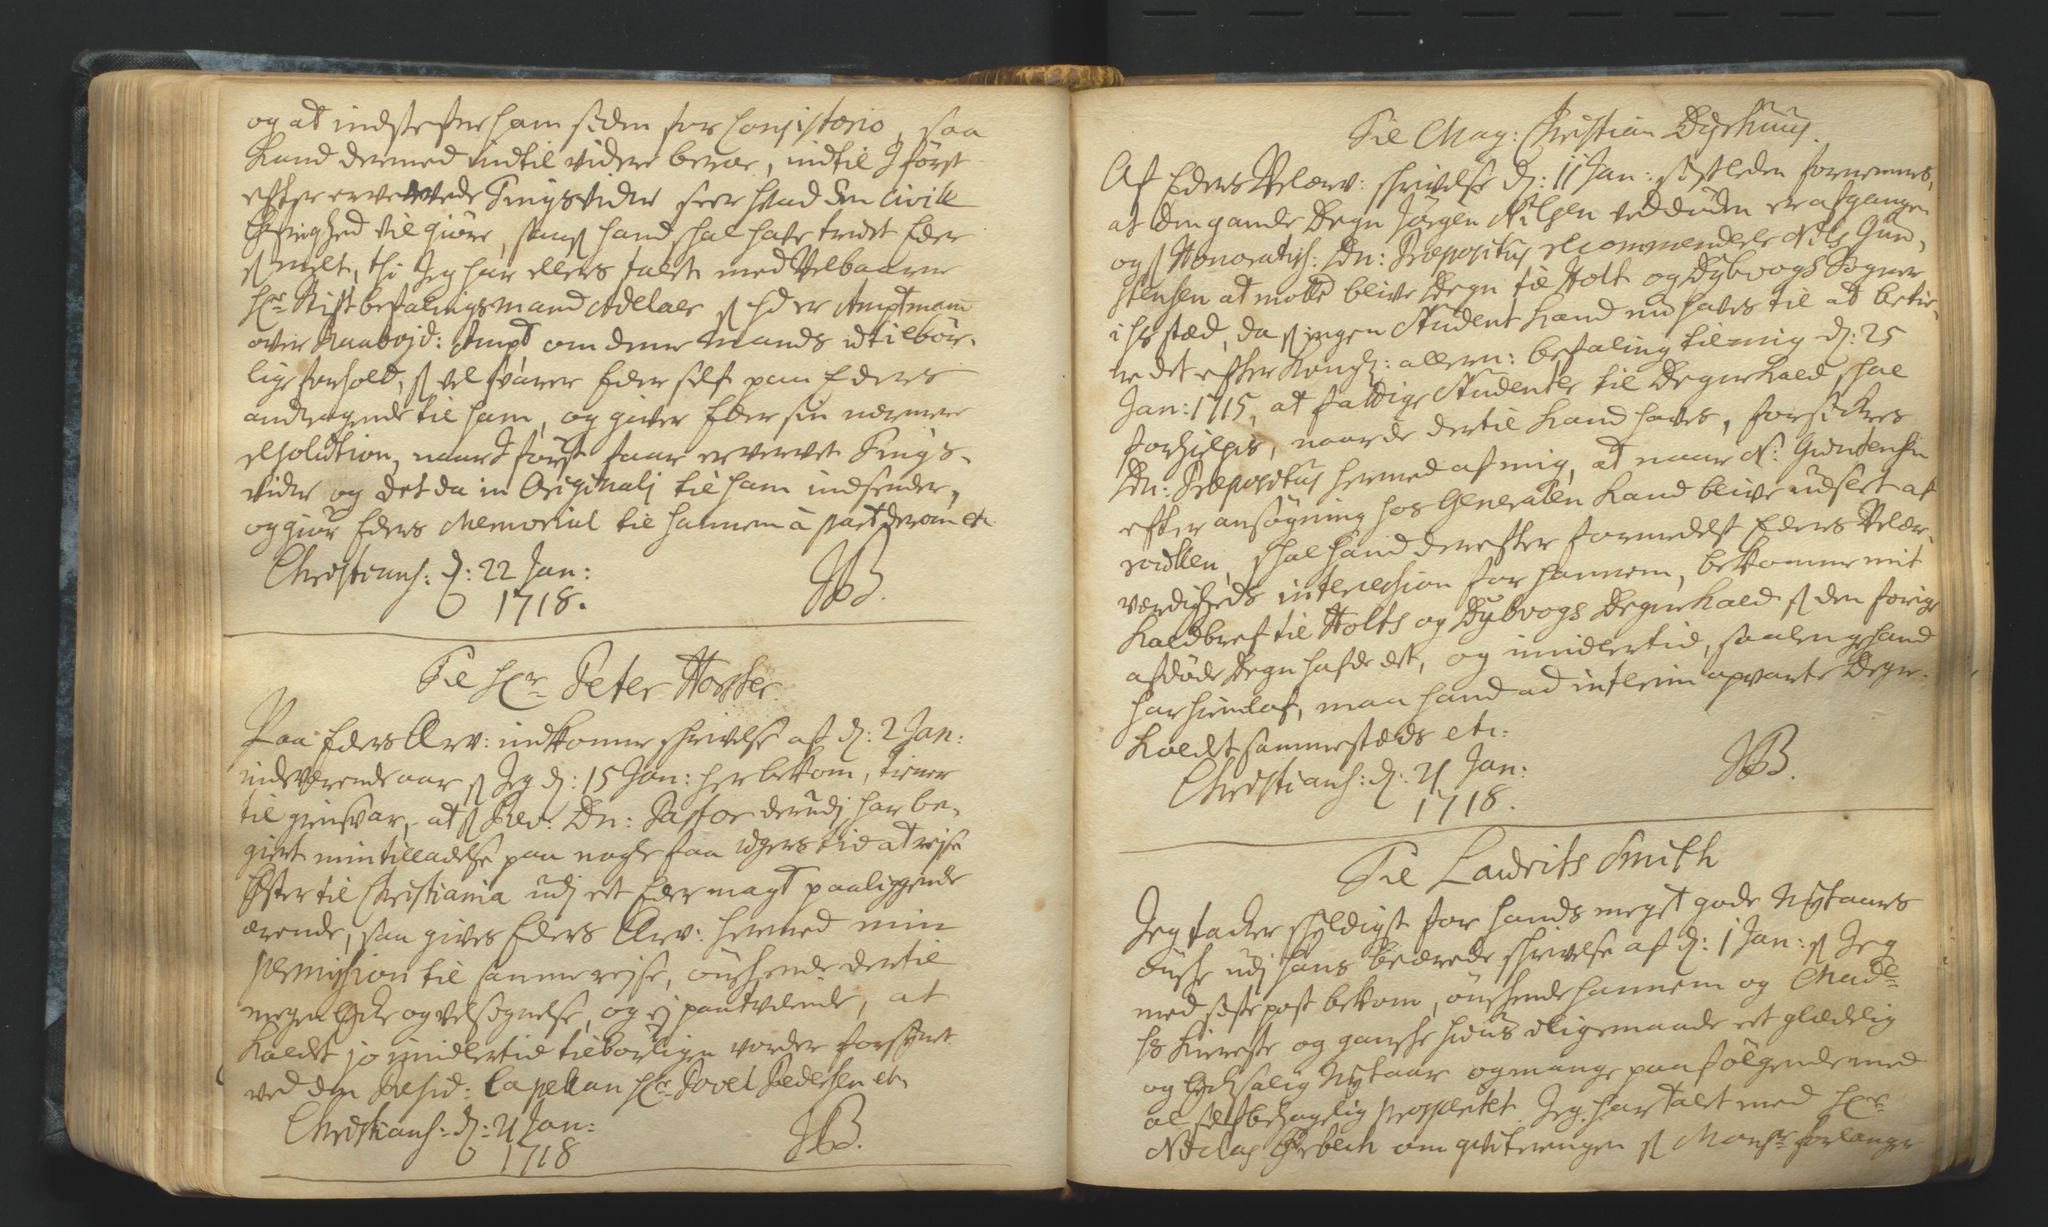 og at indstefne ham siden for Consistorio, saa
kand dermed indtil videre beroe, indtil I først
efter erververvede Tingsvidne seer hvad den Civile
Øfrighed vil giøre, som hand skal have truet Eder
med, thi Jeg har ellers talt med Velbaarne
Hr. Stiftbefalingsmand Adelaer som er Amptmand
over Raabøjd: Ampt om denne Mands utilbør-
lige forhold, som vel svarer Eder self paa Eders
andragende til ham, og giver Eder sin nærmere
Resolution, naar I først faar erhvervet Tings-
vidne og det da in Originali til ham indsender,
og giør Eders Memorial til hannem à part derom etc.
Christians: d: 22 Jan:
1718. JB.
Til Hr. Peter Horster
Paa Eders Ærv: indkomne skrivelse af d: 2 Jan:
indeværende aar som Jeg d: 15 Jan: her bekom, tiener
til giensvar, at som Rev: Dn: Pastor derudj har be-
giert min tilladelse paa nogle faa ugers tid at rejse
Øster til Christiania udj et Eder magt paaliggende
ærende, saa gives Eders Ærv: hermed min
permission til samme rejse, ønskende dertil
megen lycke og velsignelse, og ej paatvilende, at
Kaldet jo imidlertid tilbørligen vorder forsynet
ved den Resid: Capellan Hr. Povel Pedersen etc.
Christians: d: 21 Jan:
1718 JB.
Til Mag: Christian Dyrhuus.
Af Eders Velærv: skrivelse d: 11 Jan: sistleden fornemmes,
at den gamle Degn Jørgen Nilsen ved døden er afgangen
og som Honoratiss: Dn: Præpositus recommenderer Nils Gun-
stensen at motte blive Degn til Holt og Dybvogs Sogner
i hs sted, da som ingen Student kand nu haves til at betie-
ne det efter Kongl: allern: befaling til mig d: 25
Jan: 1715, at fattige Studenter til Degnekald skal
forhielpes, naar de dertil kand haves, forsickres
Dn: Præpositus hermed af mig, at naar N: Gunstensen
efter ansøgning hos Generalen kand blive udslet af
rullen, skal hand derefter formedelst Eders Velær-
værdigheds intercession for hannem, bekomme mit
Kaldbref til Holts og Dybvogs Degnekald som den forige
afdøde Degn hafde det, og imidlertid, saalenge hand
har hierelaf, maa hand ad interim opvarte Degne-
kaldet sammesteds etc.
Christians: d: 21 Jan:
1718. JB.
Til Laurits Smith
Jeg tacker skyldigst for hands meget gode Nytaars
ønske udj hans beærede skrivelse af d: 1 Jan: som Jeg
med siste post bekom, ønskende hannem og Madme
hs kiereste og gandske huus ligemaade et glædelig
og lycksalig Nytaar og mange paafølgende med
al selfbehagelig prosperitet. Jeg har talt med Hr.
Niclas om qviteringen som Monsr forlanger